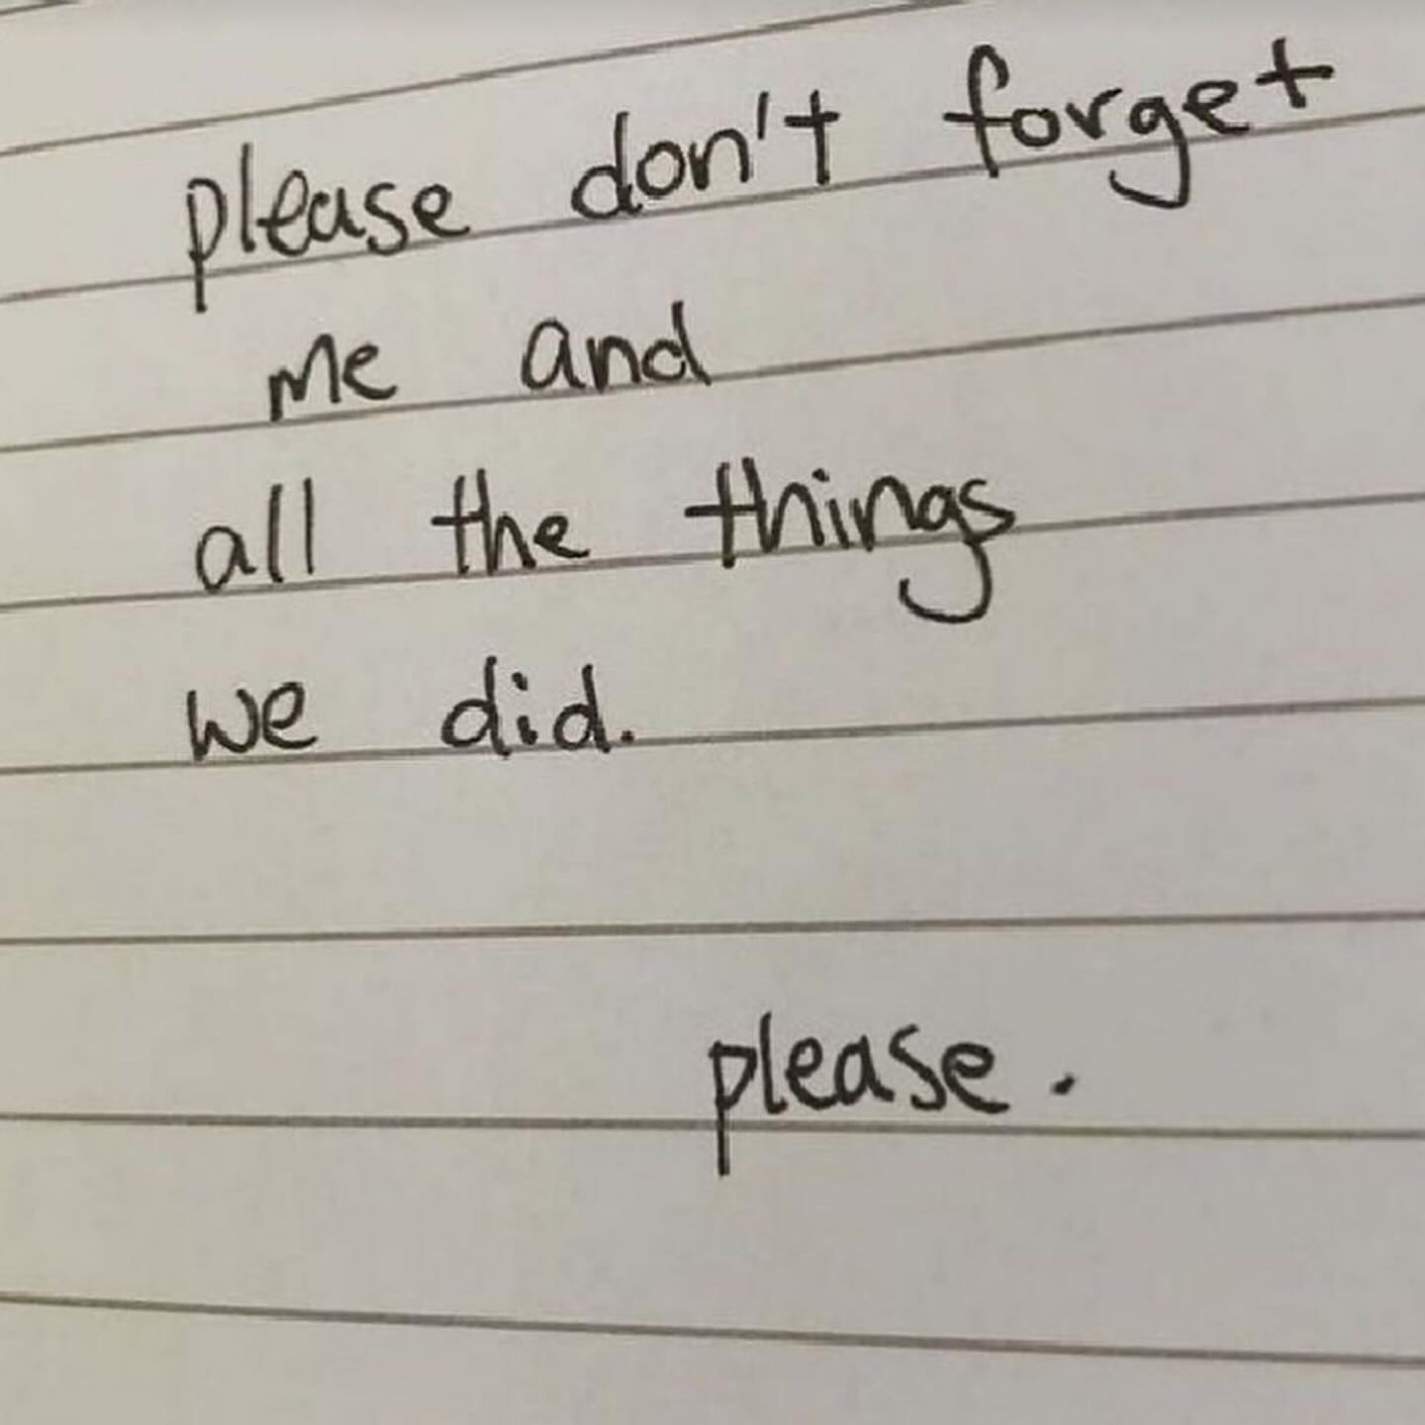 please don't forget
me and
all the things
we did.
please.